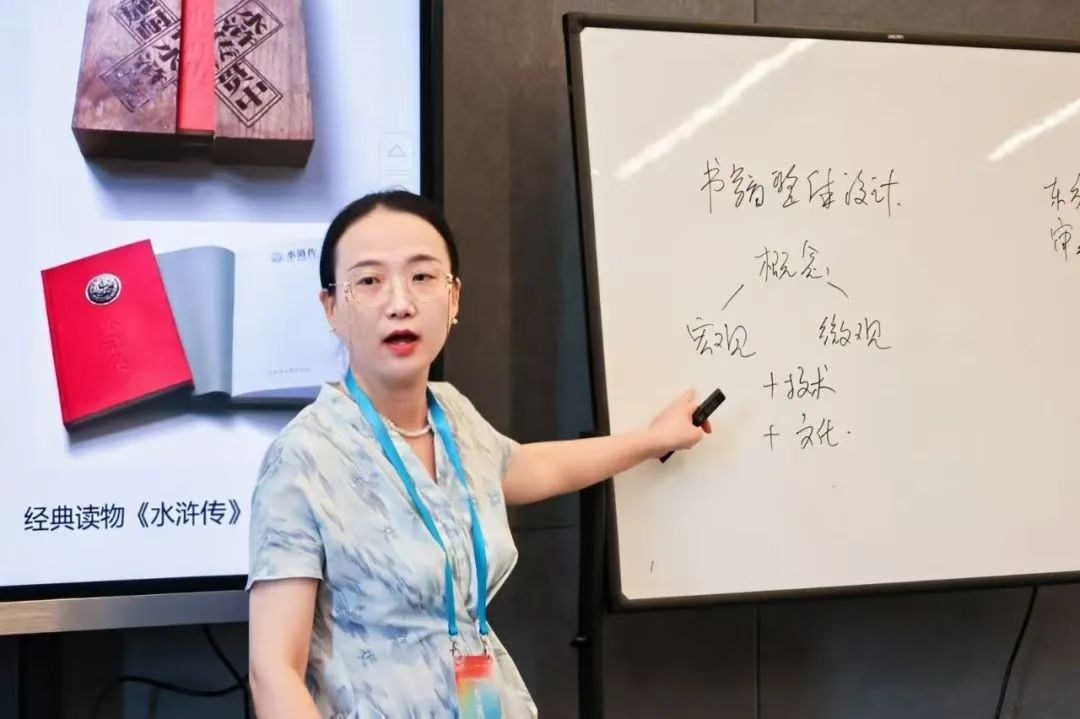 水浒传
经典读物《水浒传》
deli
书籍整体设计.
概念
宏观 微观
+技术
+文化.
东
审